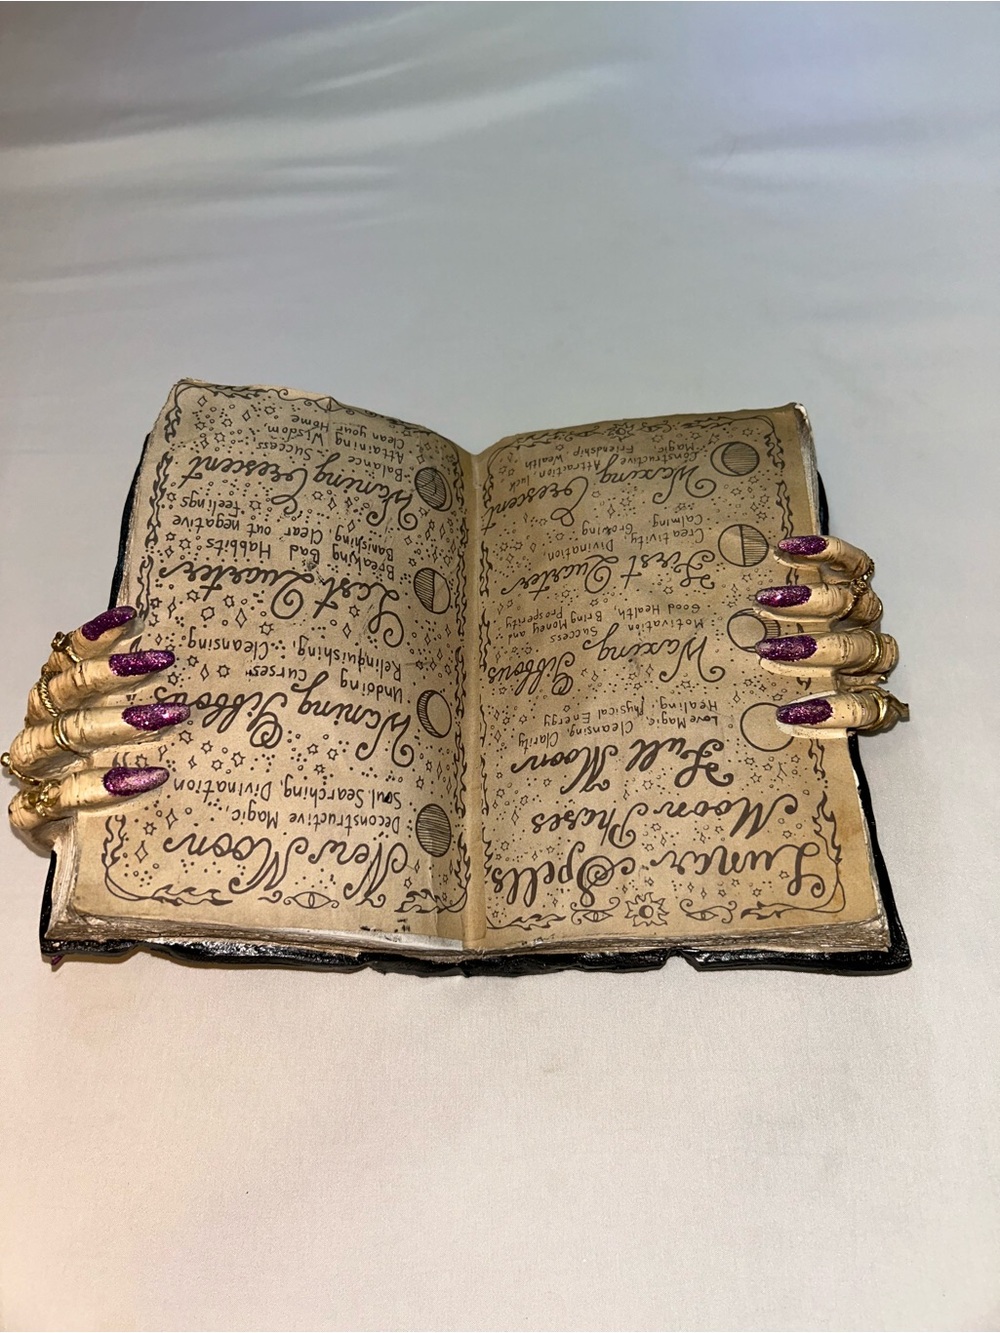 Lunar Spells,
Moon Phases
Full Moon
Love Magic, Cleansing, Clarity
Healing, Physical Energy
Waxing Gibbous
Success Money and
Motivation Bring Prosperity
Good Health
First Quarter
Creativity Divination,
Calming Growing
Waxing Crescent
Constructive Attraction luck
Magic Friendship Wealth
New Moon
Deconstructive Magic,
Soul Searching Divination
Waning Gibbous
Undoing Curses
Relinquishing, Cleansing
Last Quarter
Breaking Bad Habbits
Banishing Clear out negative
feelings
Waning Crescent
Balance - Success
Attaining Wisdom,
Clean your Home